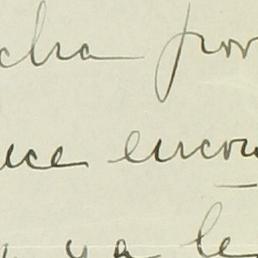 cha por
uce encon
ya le